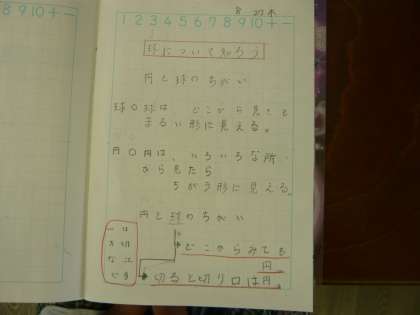 8 9 10 + −
1 2 3 4 5 6 7 8 9 10 + −
球について知ろう
円と球のちがい
球○球は どこから見ても
まるい形に見える。
円○円は、いろいろな所
から見たら
ちがう形に見える。
円と球のちがい
どこからみても
円。
切ると切り口は円。